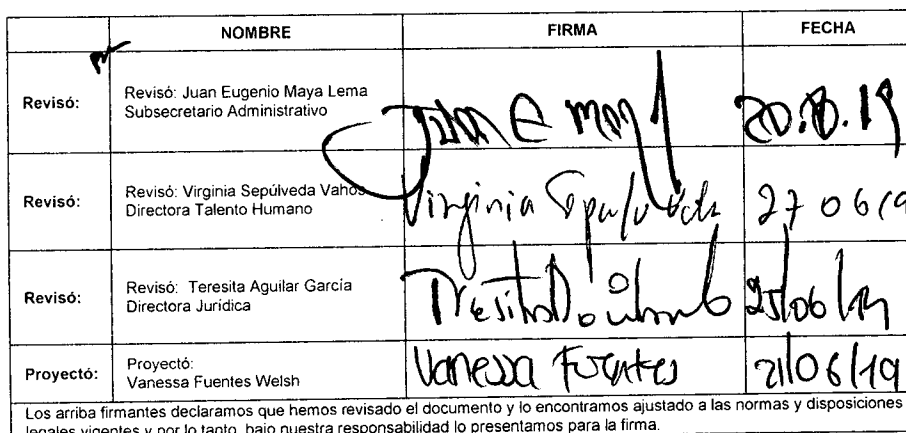 NOMBRE FIRMA FECHA
Revisó: Revisó: Juan Eugenio Maya Lema
Subsecretario Administrativo
Juan E May
Revisó: Revisó: Virginia Sepúlveda Vahos
Directora Talento Humano
Virginia Sepulveda 27 06 19
Revisó: Revisó: Teresita Aguilar García
Directora Jurídica
25/06/19
Proyectó: Proyectó:
Vanessa Fuentes Welsh
Vanessa Fuentes 21/06/19
Los arriba firmantes declaramos que hemos revisado el documento y lo encontramos ajustado a las normas y disposiciones
legales vigentes y por lo tanto, bajo nuestra responsabilidad lo presentamos para la firma.